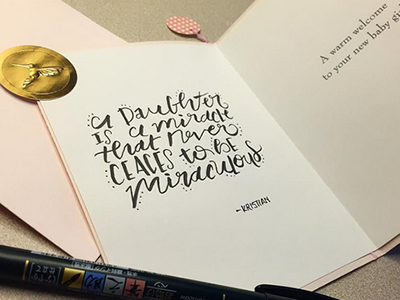 a Daughter
IS a miracle
that never
CEACES to BE
Miraculous
-KRYSTIAN
A warm welcome
to your new baby gi